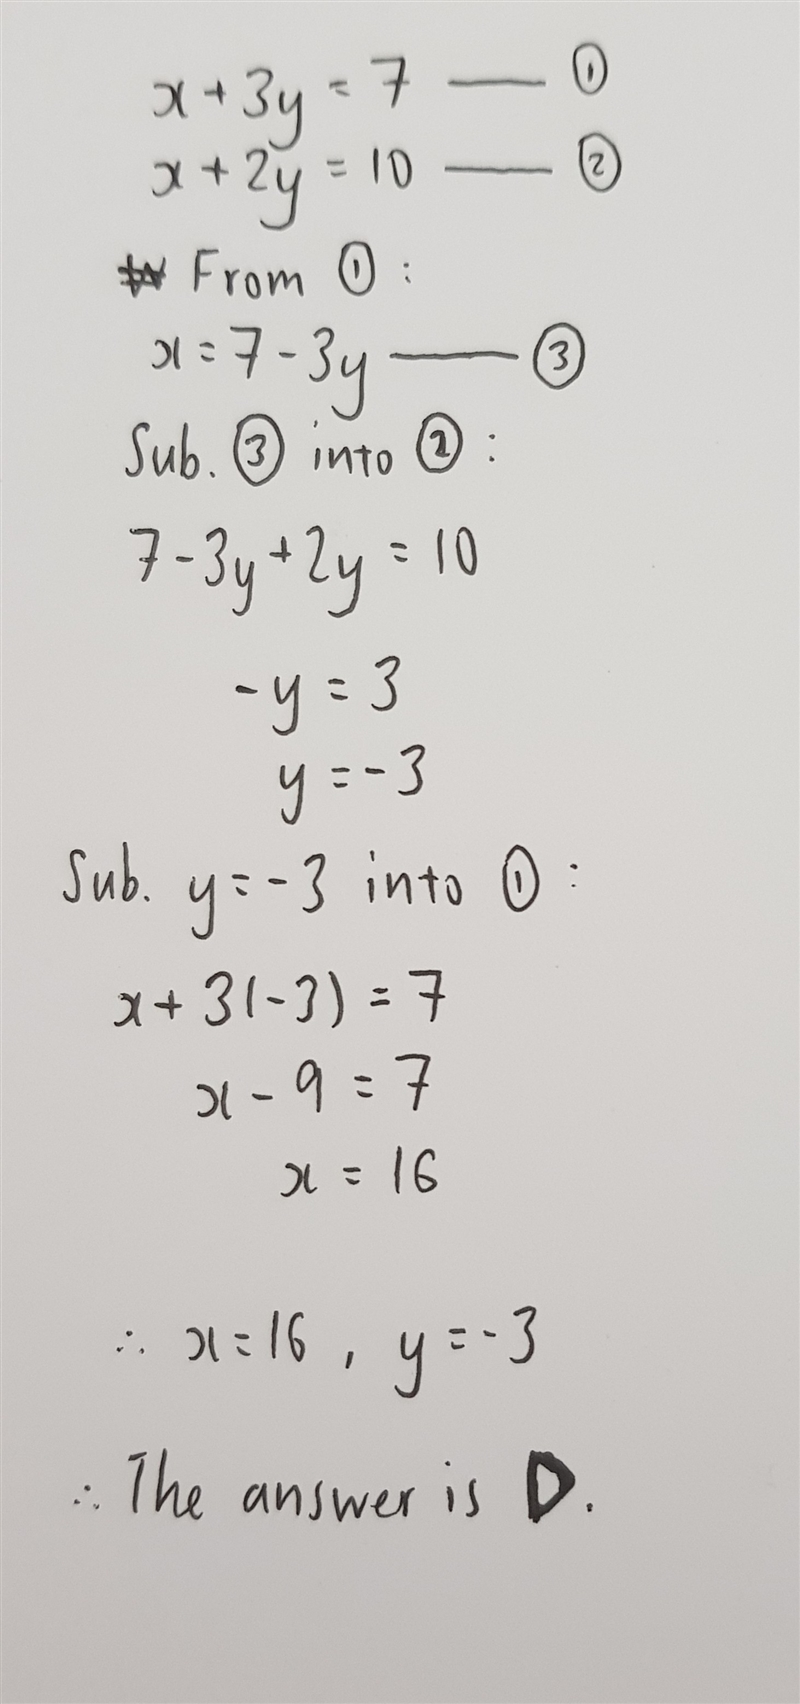 x + 3y = 7 —— ①
x + 2y = 10 —— ②
From ① :
x = 7 - 3y —— ③
Sub. ③ into ② :
7 - 3y + 2y = 10
-y = 3
y = -3
Sub. y = -3 into ① :
x + 3(-3) = 7
x - 9 = 7
x = 16
∴ x = 16 , y = -3
∴ The answer is D.